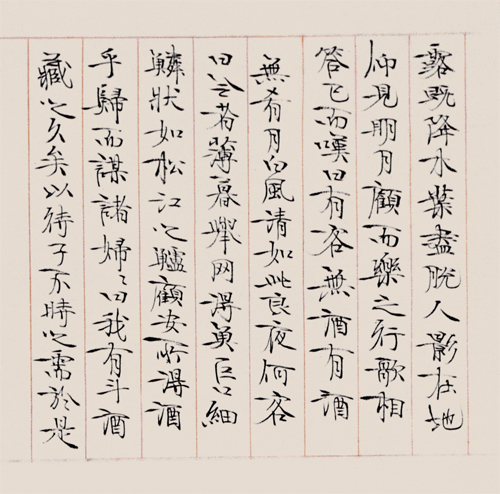 露既降木葉盡脫人影在地
仰見明月顧而樂之行歌相
答已而嘆曰有客無酒有酒
無肴月白風清如此良夜何客
曰今者薄暮舉网得魚巨口細
鱗狀如松江之鱸顧安所得酒
乎歸而謀諸婦〻曰我有斗酒
藏之久矣以待子不時之需於是